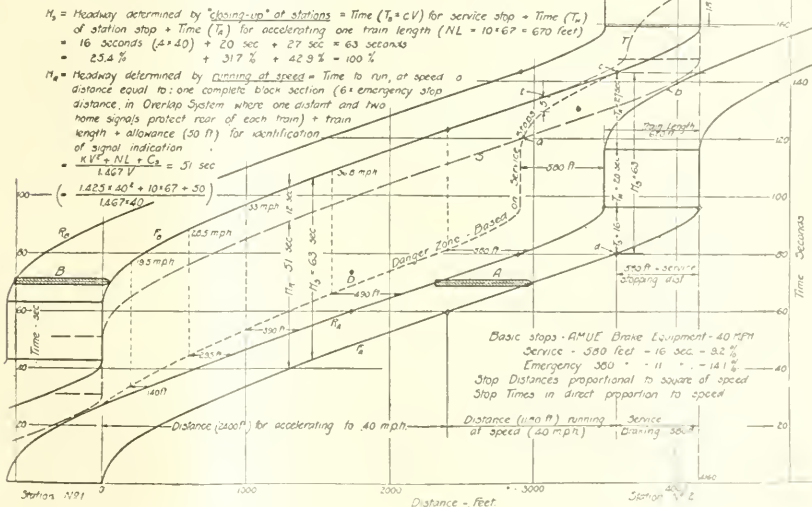 Hs = Headway determined by "closing-up" at stations = Time (Ts = cV) for service stop + Time (Tw)
of station stop + Time (TA) for accelerating one train length (NL = 10×67 = 670 feet)
= 16 seconds (.4×40) + 20 sec + 27 sec = 63 seconds
= 25.4 % + 31.7 % + 42.9 % = 100 %
HR = Headway determined by running at speed = Time to run, at speed a
distance equal to: one complete block section (6 × emergency stop
distance, in Overlap System where one distant and two
home signals protect rear of each train) + train
length + allowance (50 ft) for identification
of signal indication
= KV² + NL + C3 / 1.467 V = 51 sec
( = 1.425×40² + 10×67 + 50 / 1.467×40 )
100
80
60
40
20
0
Time - sec
B
RB
FB
S
T
9.5 mph
28.5 mph
33 mph
36.8 mph
HR = 51 sec
12 sec
Hs = 63 sec
Danger Zone - Based on Service Stops
140 ft
295 ft
390 ft
490 ft
580 ft
D
A
RA
FA
a
b
c
d
580 ft
Train Length
670 ft
Ts = 16
Tw = 20 sec
TA = 27 sec
Hs = 63
580 ft - service
stopping dist
Basic stops - AMUE Brake Equipment - 40 MPH
Service - 580 feet - 16 sec - 9.2 %
Emergency 380 " - 11 " - 14.1 %
Stop Distances proportional to square of speed
Stop Times in direct proportion to speed
Distance (2400 ft) for accelerating to 40 mph.
Distance (1180 ft) running
at speed (40 m.p.h.)
Service
Braking 580 ft
Station Nº1
0
1000
2000
3000
4160
Station Nº 2
Distance - Feet.
160
140
120
100
80
60
40
20
Time Seconds